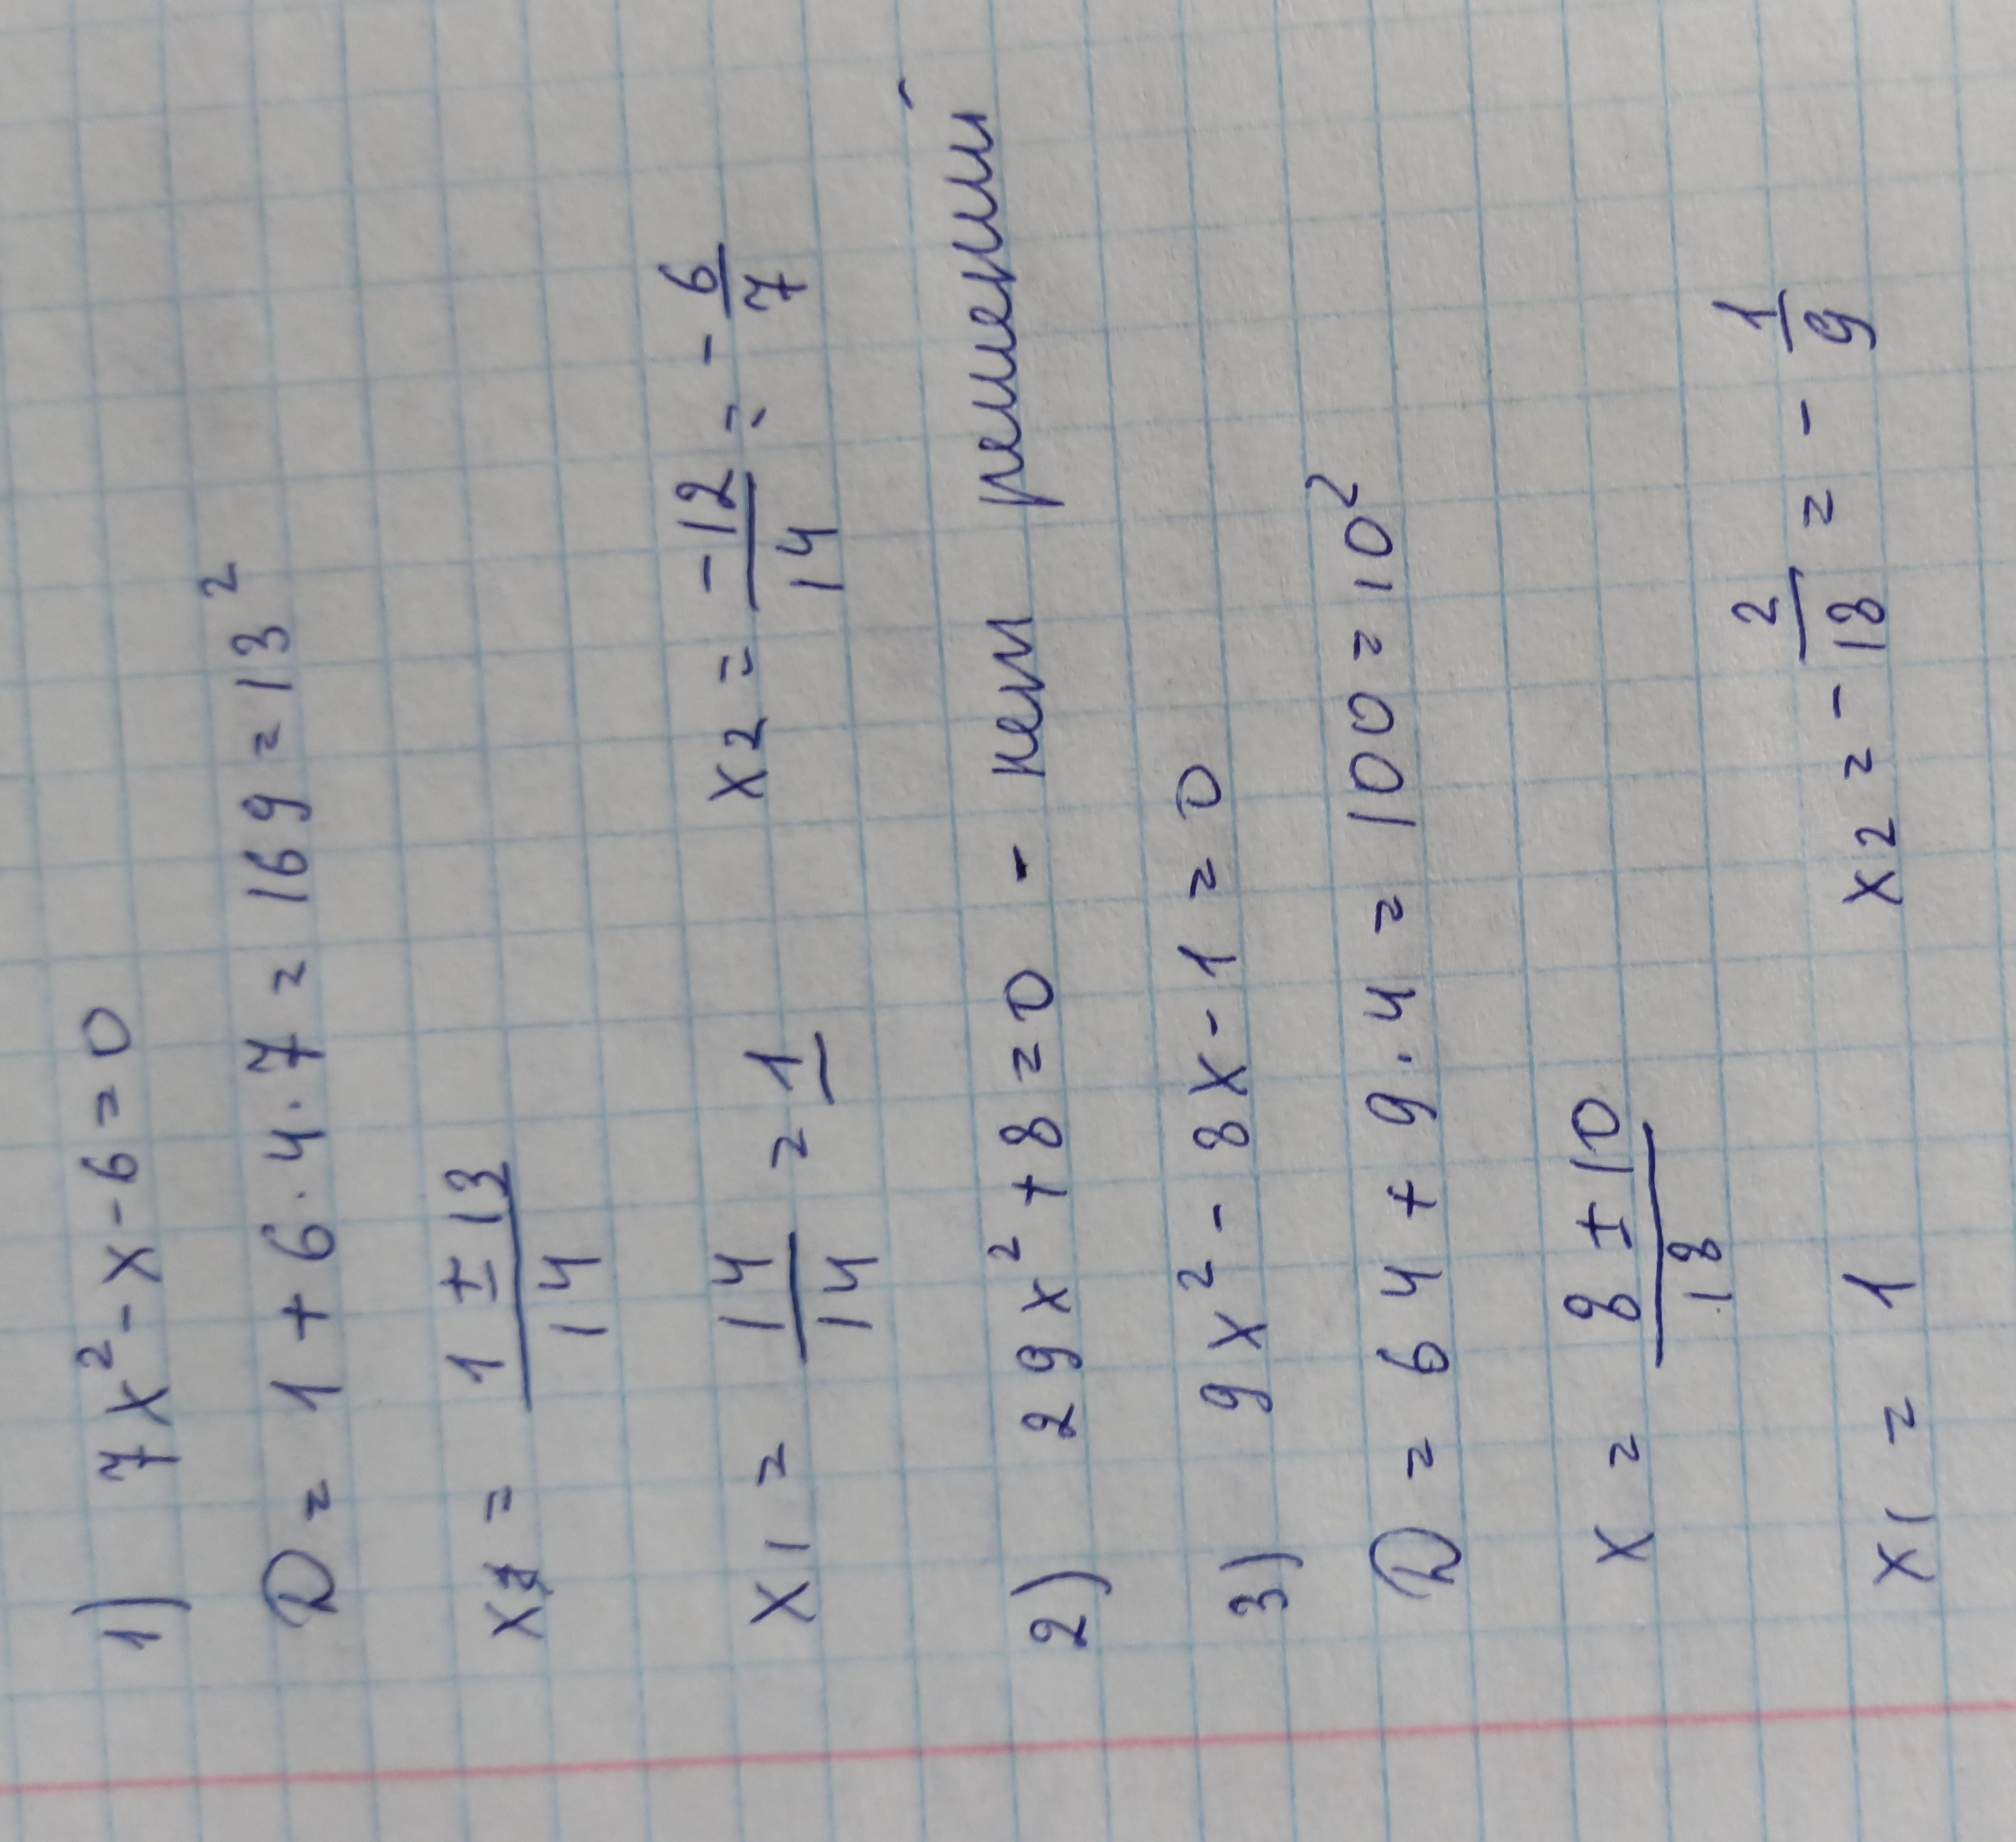 1) 7x² - x - 6 = 0
D = 1 + 6 · 4 · 7 = 169 = 13²
x = \frac{1 ± 13}{14}
x1 = \frac{14}{14} = 1 x2 = \frac{-12}{14} = - \frac{6}{7}
2) 29x² + 8 = 0 - нет решений
3) 9x² - 8x - 1 = 0
D = 64 + 9 · 4 = 100 = 10²
x = \frac{8 ± 10}{18}
x1 = 1 x2 = - \frac{2}{18} = - \frac{1}{9}